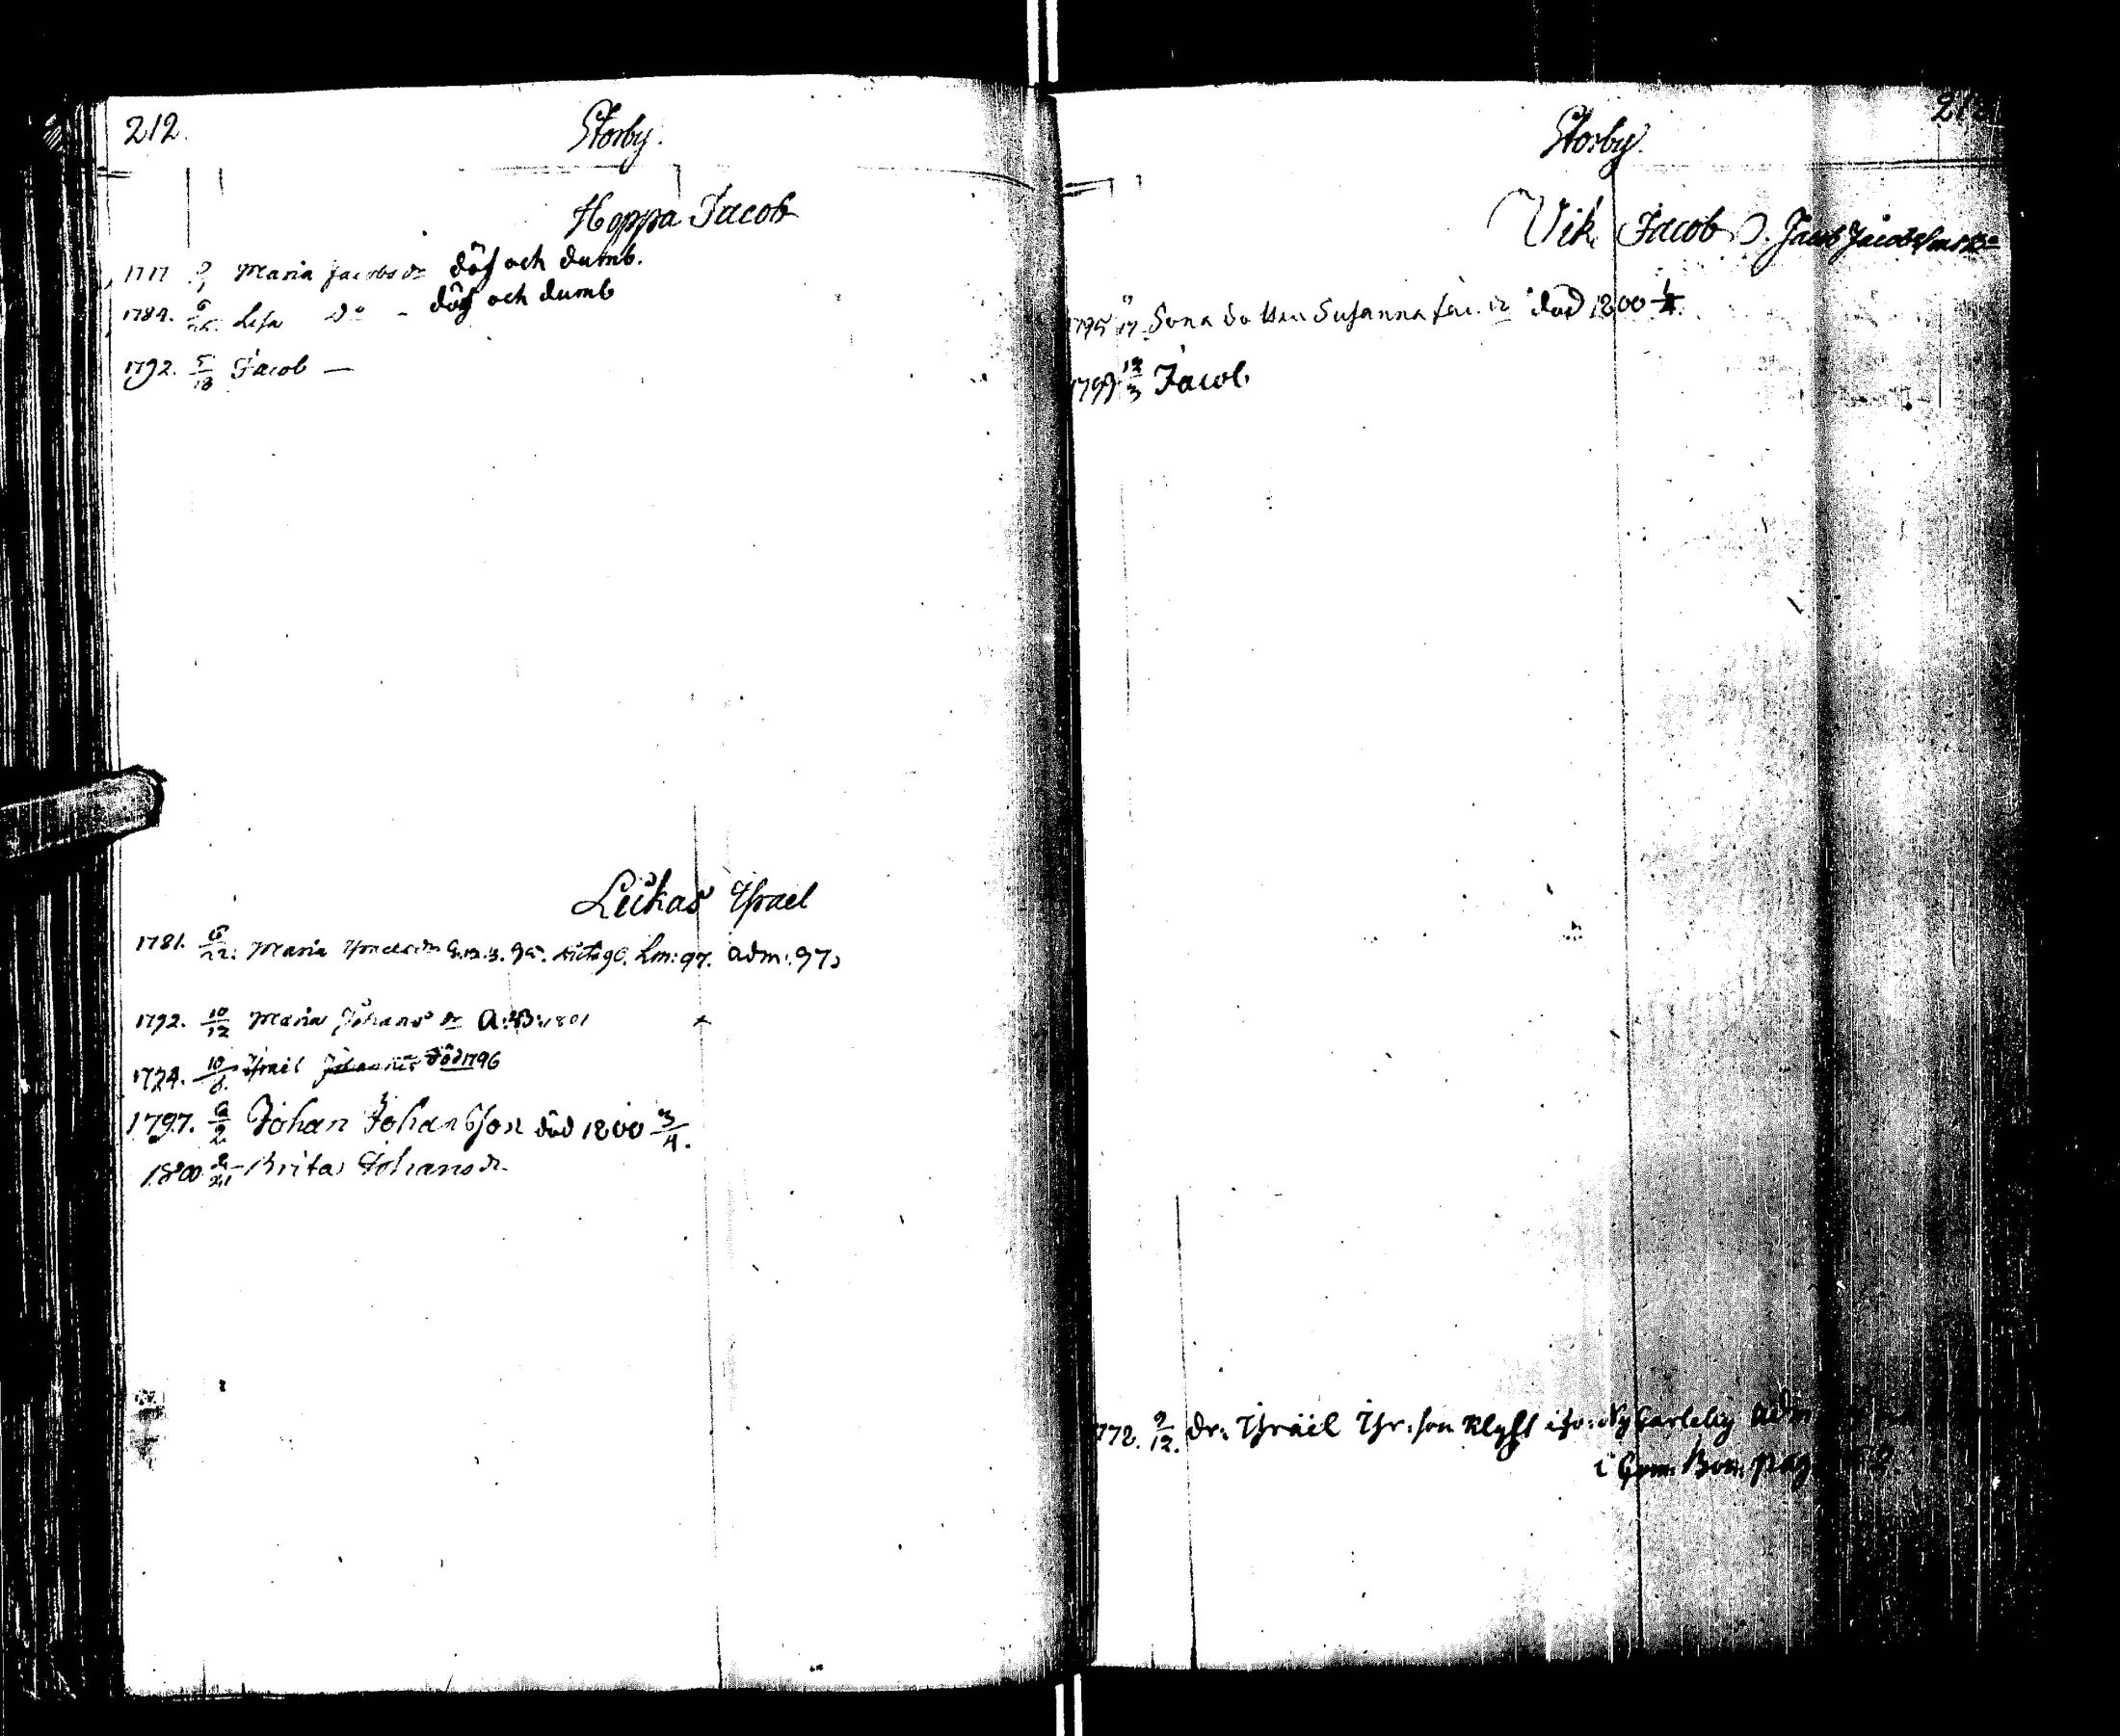 212.
Storby.
Hoppa Jacob
1777 Maria Jacobs dr döf och dumb.
1784. 6 Lisa do - döf och dumb
1792. 5/18 Jacob —
Lukas Israel
1781. 6/22. Maria Lm: 97. adm: 97
1792. 10/12 Maria Johans dr a: B: 1801
1724. 10/6. Israel död 1796
1797. 2 Johan Johansson död 1800 3/4.
1800 21 Brita Johans dr.
21
Storby.
Vik Jacob Jacob Jacobsson
1795 17 Sona dotter Susanna död 1800
12/3 Jacob
1772. 9/12. dr: Israel Isr: son Klyft Ny Carleby adm
i pag